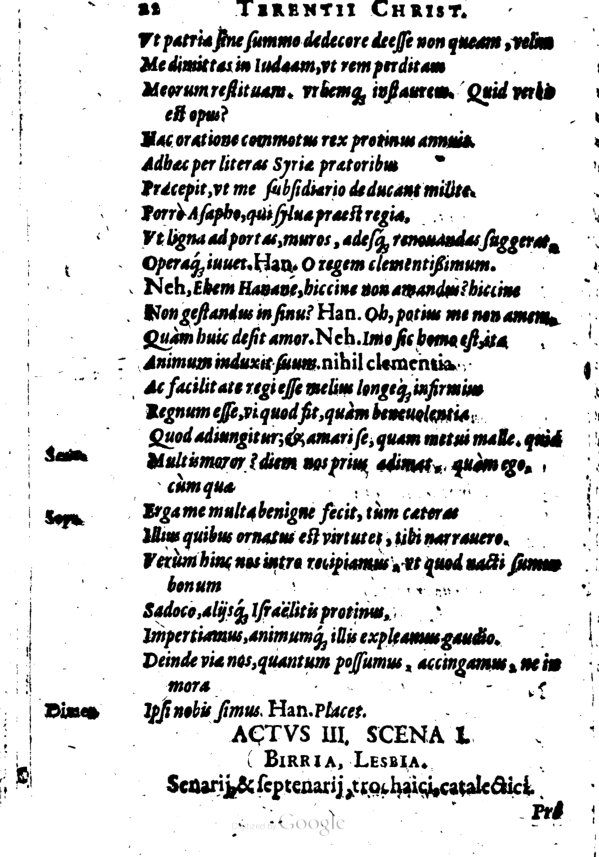 22 TERENTII CHRIST.
Vt patria sine summo dedecore deesse non queam, velim
Me dimittas in Iudaam, vt rem perditam
Meorum restituam. vrbemq; instaurem. Quid verbis
est opus?
Hac oratione commotus rex protinus annuit.
Adhac per literas Syria pratoribus
Pracepit, vt me subsidiario deducant milite.
Porrò Asapho, qui sylua praest regia,
Vt ligna ad portas, muros, adesq; renouandas suggerat,
Operaq; iuuet. Han. O regem clementißimum.
Neh, Ehem Hanane, hiccine non amandus? hiccine
Non gestandus in sinu? Han. Oh, potius me non amem,
Quàm huic desit amor. Neh. Imo sic homo est, ita
Animum induxit suum. nihil clementia
Ac facilitate regi esse melius longeq; infirmius
Regnum esse, vi quod fit, quàm beneuolentia
Quod adiungitur; &, amari se, quam metui malle. quid
Senar. Multis moror? diem nos prius adimat, quàm ego,
cùm qua
Sept. Erga me multa benigne fecit, tùm cateras
Illius quibus ornatus est virtutes, tibi narrauero.
Verùm hinc nos intro recipiamus, vt quod nacti sumus
bonum
Sadoco, alijsq; Israëlitis protinus,
Impertiamus, animumq; illis expleamus gaudio.
Deinde via nos, quantum possumus, accingamus, ne in
mora
Dimet. Ipsi nobis simus. Han. Placet.
ACTVS III. SCENA I.
BIRRIA, LESBIA.
Senarij, & septenarij, trochaici, catalectici.
Pro
Digitized by Google